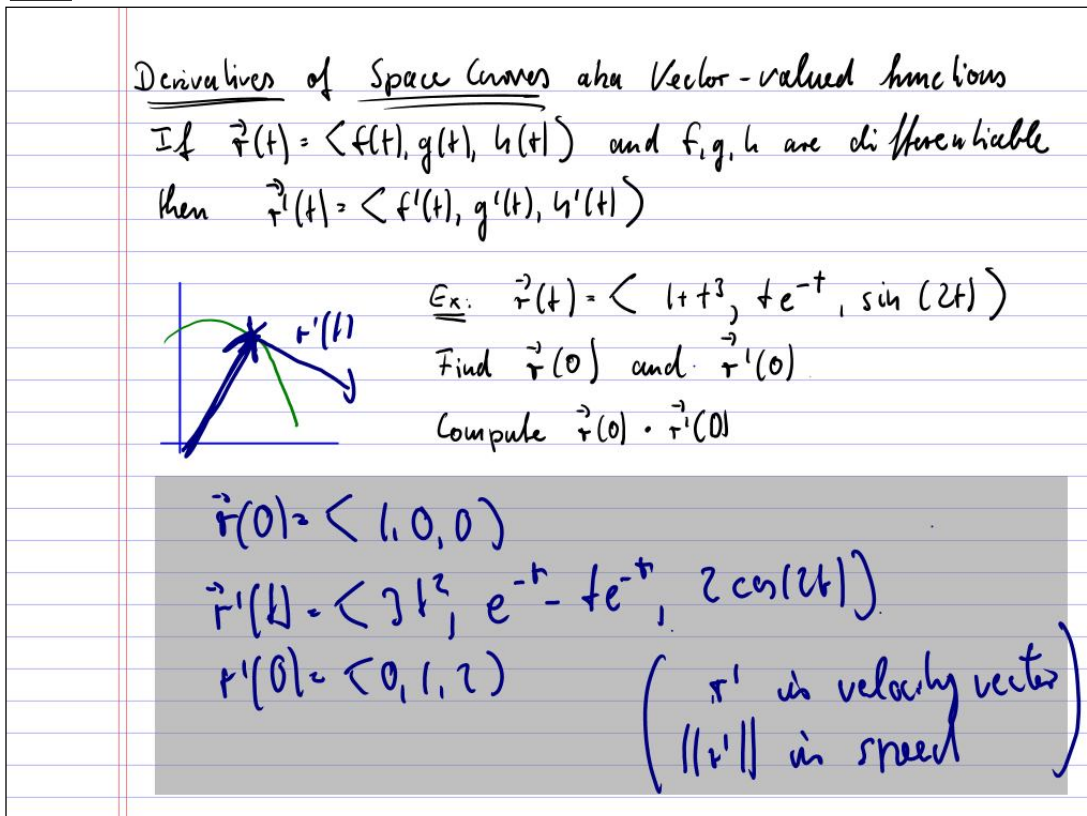 Derivatives of Space Curves aka Vector-valued functions
If r⃗(t) = <f(t), g(t), h(t)> and f, g, h are differentiable
then r⃗'(t) = <f'(t), g'(t), h'(t)>
r'(t)
Ex: r⃗(t) = < 1+t³, te⁻ᵗ, sin (2t)>
Find r⃗(0) and r⃗'(0)
Compute r⃗(0) · r⃗'(0)
r⃗(0) = < 1, 0, 0>
r⃗'(t) = <3t², e⁻ᵗ - te⁻ᵗ, 2 cos(2t)>
r'(0) = <0, 1, 2>
(r' is velocity vector
||r'|| is speed)